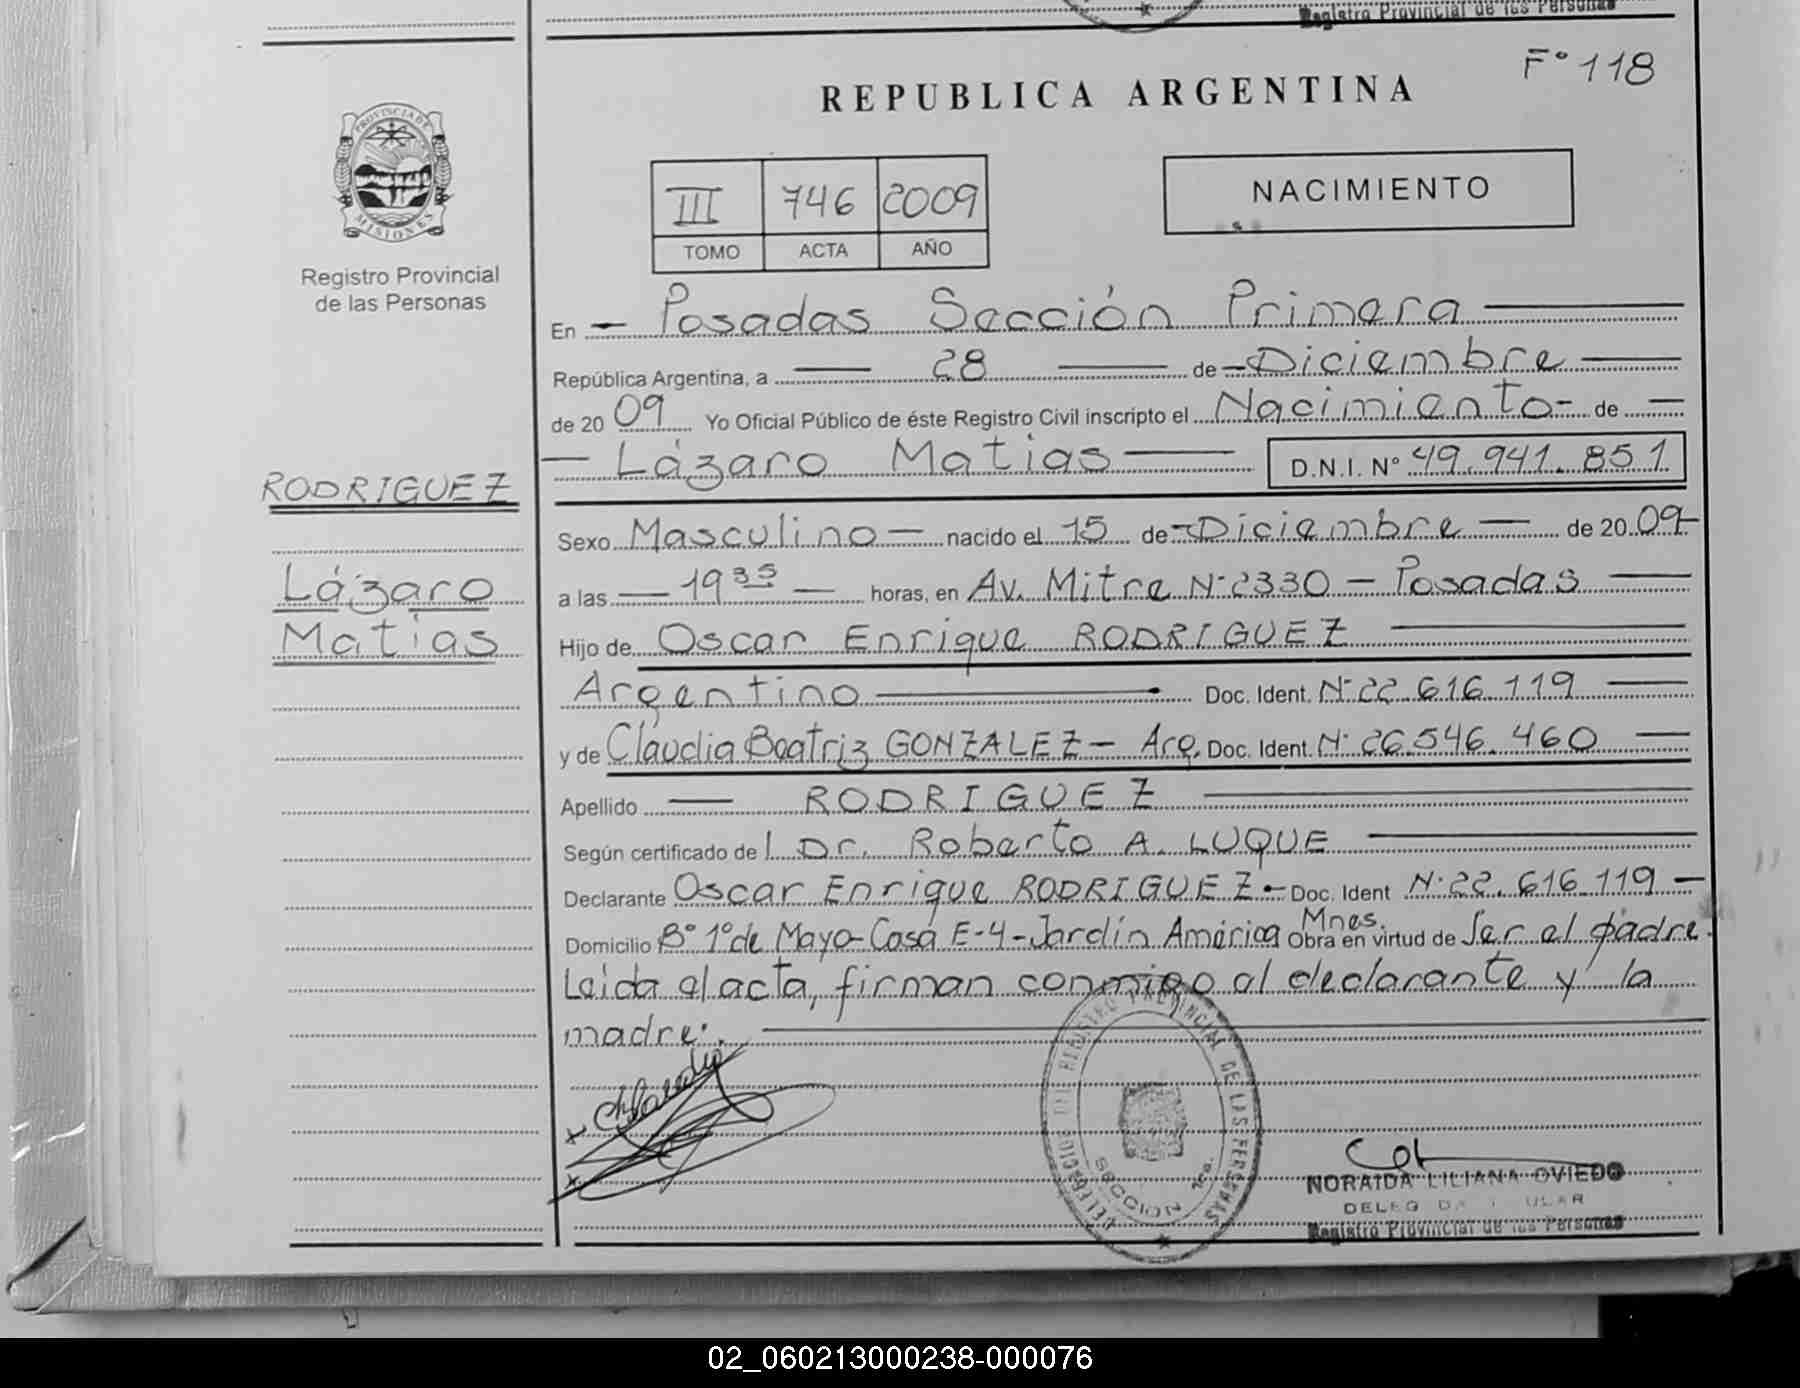 Registro Provincial de las Personas
F° 118
REPUBLICA ARGENTINA
PROVINCIA DE MISIONES
Registro Provincial
de las Personas
III 746 2009
TOMO ACTA AÑO
NACIMIENTO
En Posadas Sección Primera
República Argentina, a 28 de Diciembre
de 2009 Yo Oficial Público de éste Registro Civil inscripto el Nacimiento de
Lázaro Matias D.N.I. N° 49.941.851
RODRIGUEZ
Lázaro
Matías
Sexo Masculino nacido el 15 de Diciembre de 2009
a las 19 35 horas, en Av. Mitre N° 2330 - Posadas
Hijo de Oscar Enrique RODRIGUEZ
Argentino Doc. Ident. N° 22.616.119
y de Claudia Beatriz GONZALEZ - Arg. Doc. Ident. N° 26.546.460
Apellido RODRIGUEZ
Según certificado de l Dr. Roberto A. LUQUE
Declarante Oscar Enrique RODRIGUEZ - Doc. Ident N° 22.616.119
Domicilio B° 1° de Mayo - Casa E-4 - Jardín América Mnes. Obra en virtud de Ser el padre.
Leída el acta, firman conmigo el declarante y la
madre.
Claudia
DELEGACION DEL REGISTRO PROVINCIAL DE LAS PERSONAS
SECCION 1ra.
NORAIDA LILIANA OVIEDO
Registro Provincial de las Personas
02_060213000238-000076